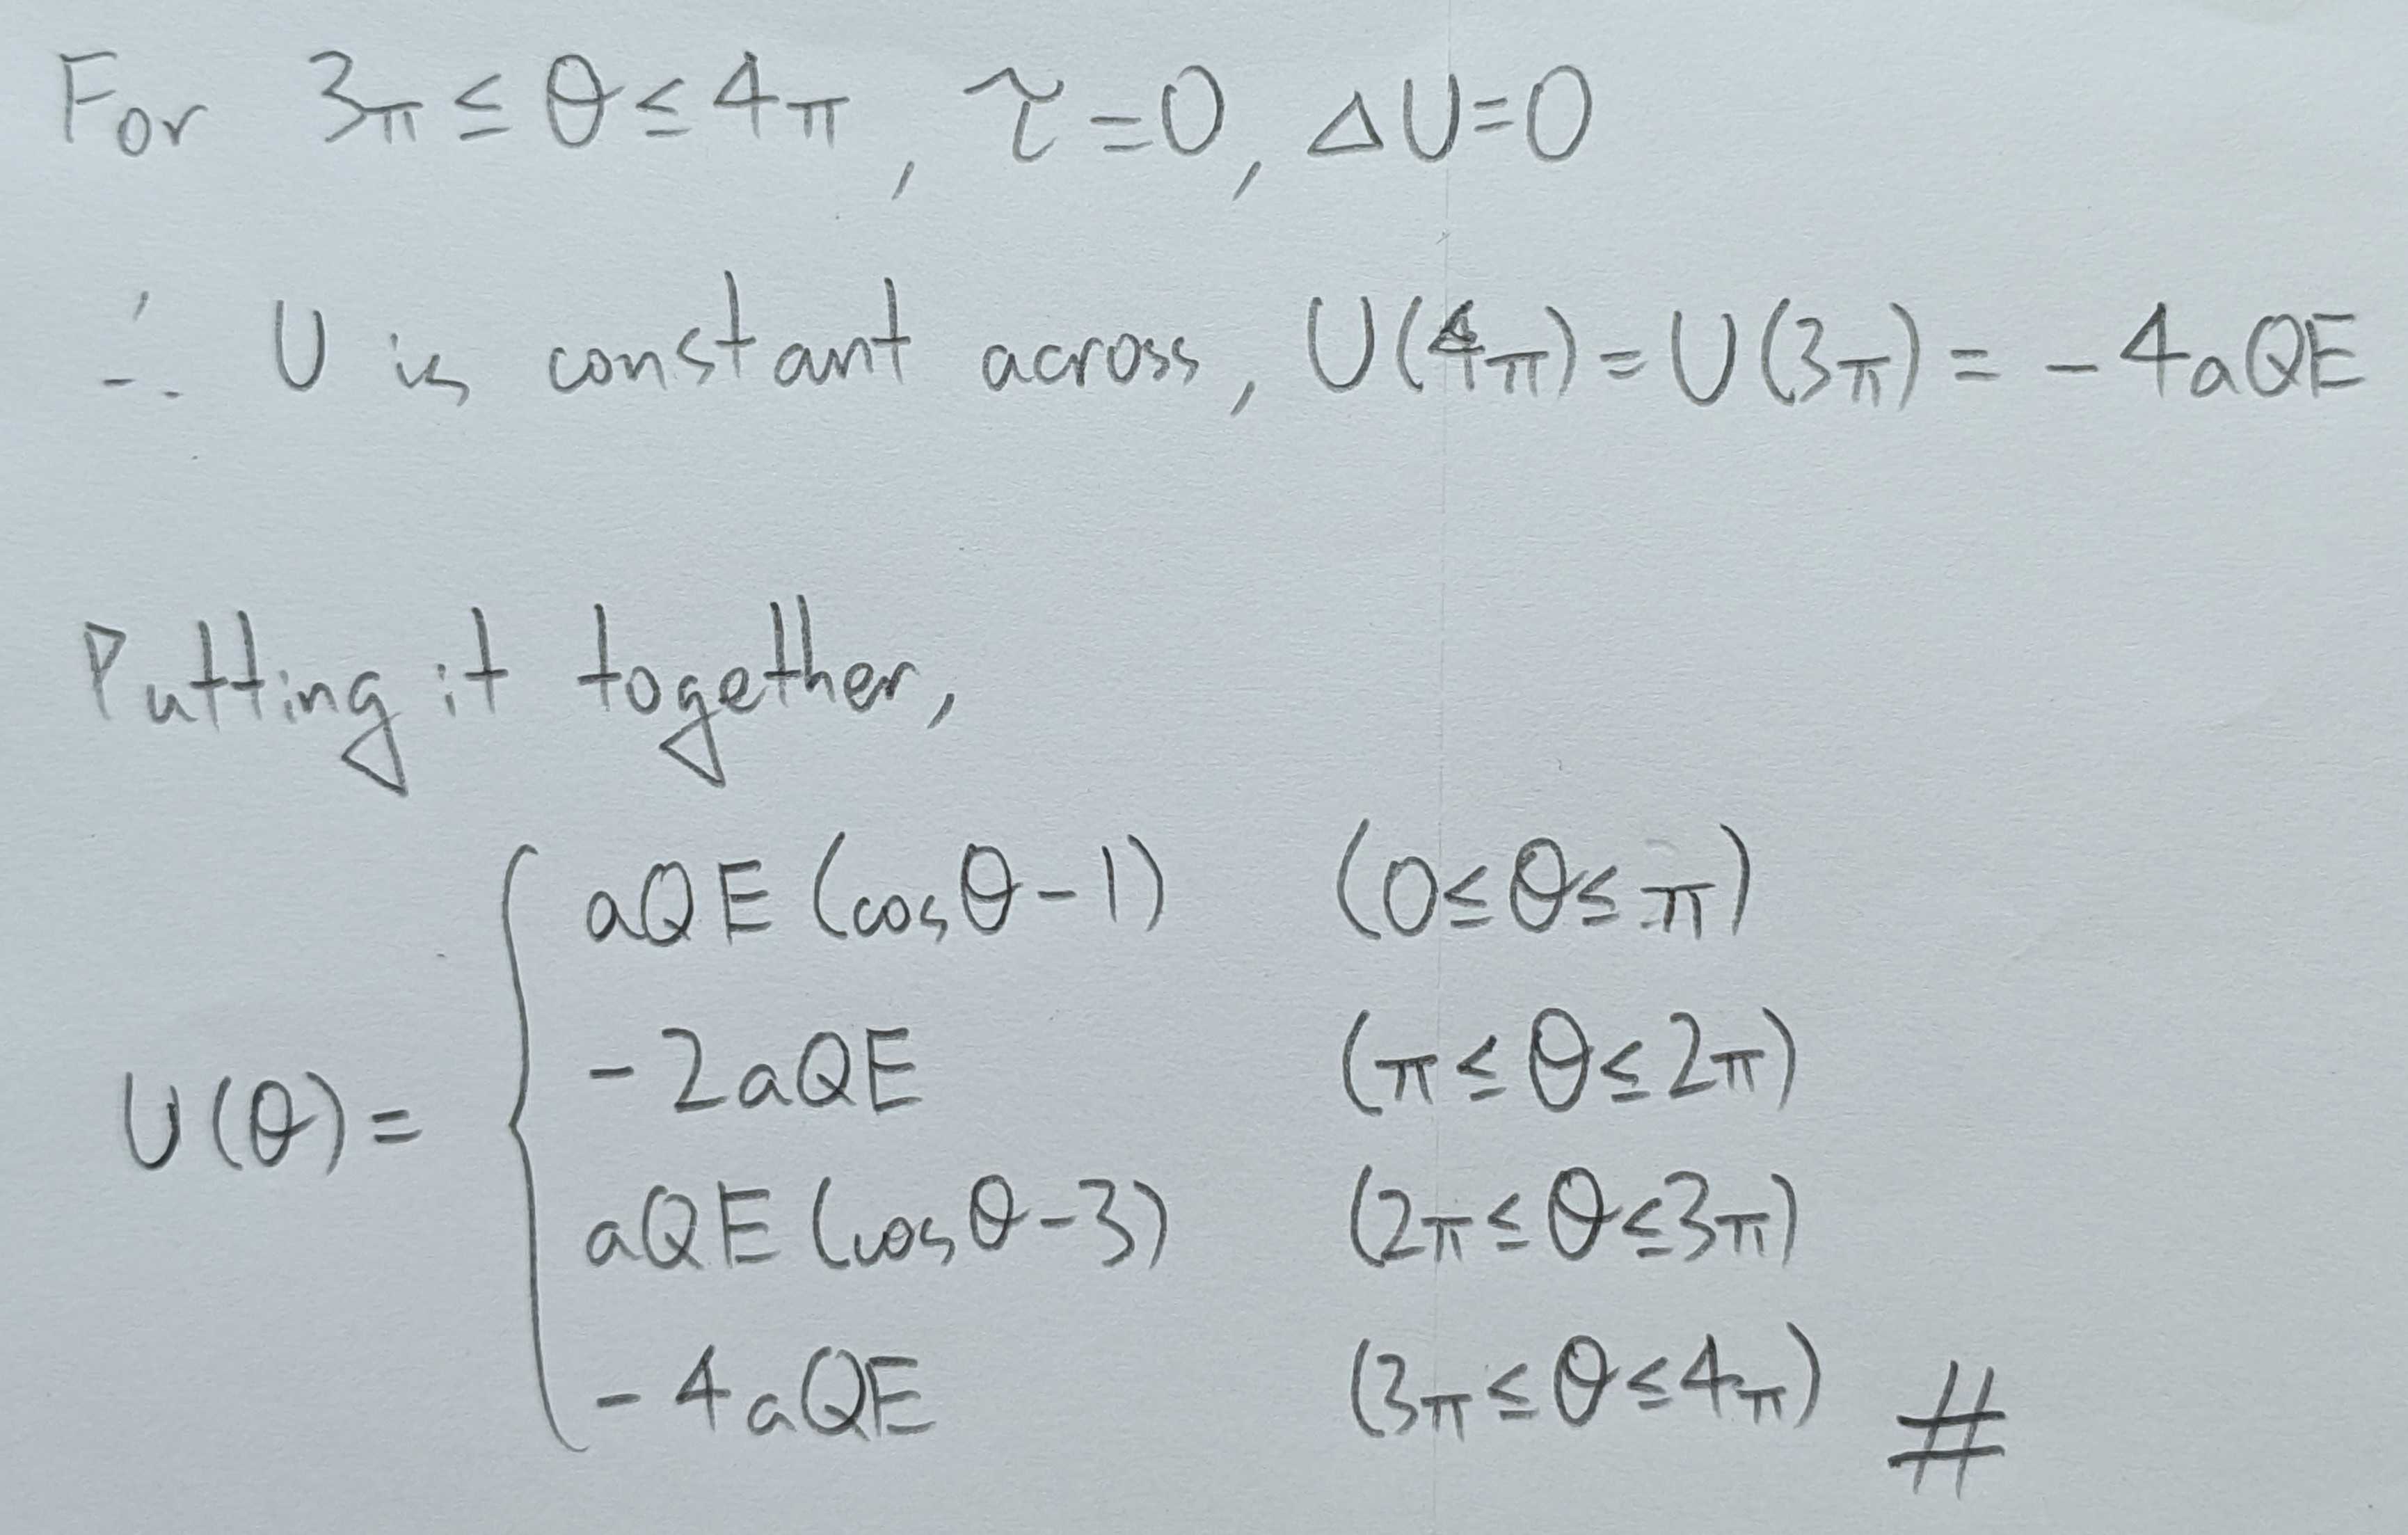 For 3π ≤ θ ≤ 4π, τ = 0, ΔU = 0
∴ U is constant across, U(4π) = U(3π) = -4aQE
Putting it together,
aQE (cosθ-1) (0≤θ≤π)
-2aQE (π≤θ≤2π)
U(θ) =
aQE (cosθ-3) (2π≤θ≤3π)
-4aQE (3π≤θ≤4π) #